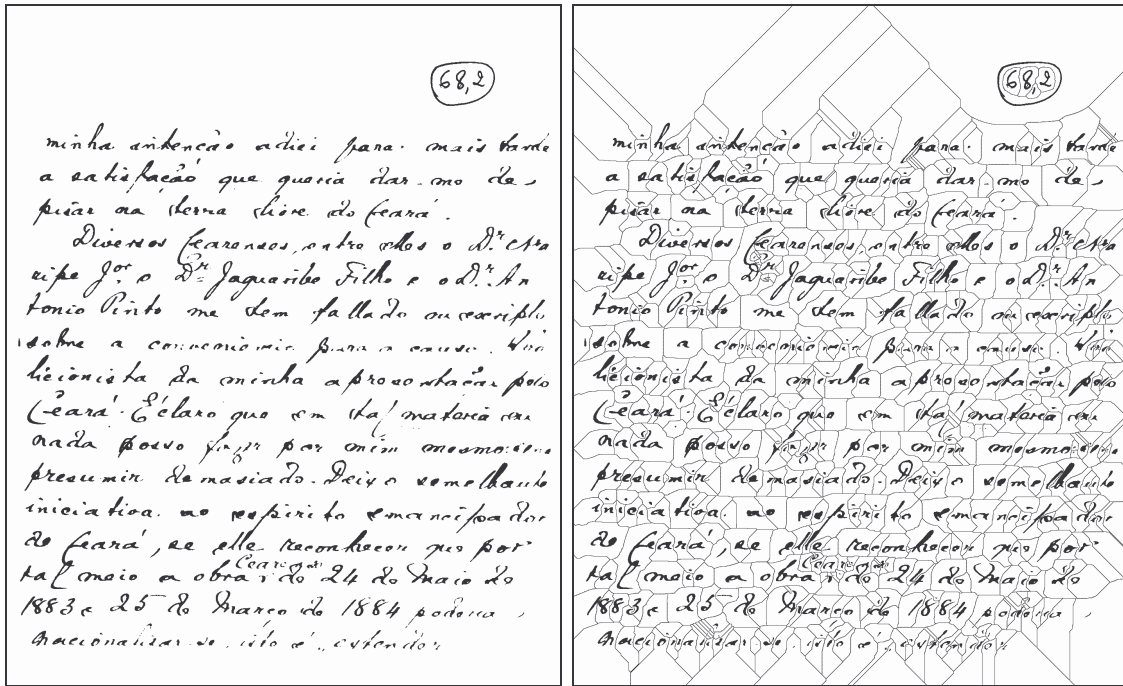 68,2
minha intenção adiei para mais tarde
a satisfação que queria dar-me de
pisar na terra livre do Ceará.
Diversos Cearenses, entre elles o Dr. Ara
ripe Jor. e Dr. Jaguaribe Filho e o Dr. An
tonio Pinto me tem fallado
sobre a conveniencia para a causa
licionista da minha apresentação pelo
Ceará. É claro que em tal materia eu
nada posso por mim mesmo
presumir demasiado. Deixo semelhante
iniciativa ao espirito emancipador
do Ceará, se elle reconhecer que por
tal meio a obra do 24 de Maio de
1883 e 25 de Março de 1884
nacionalizar-se, isto é, estender
68,2
minha intenção adiei para mais tarde
a satisfação que queria dar-me de
pisar na terra livre do Ceará.
Diversos Cearenses, entre elles o Dr. Ara
ripe Jor. e Dr. Jaguaribe Filho e o Dr. An
tonio Pinto me tem fallado
sobre a conveniencia para a causa
licionista da minha apresentação pelo
Ceará. É claro que em tal materia eu
nada posso por mim mesmo
presumir demasiado. Deixo semelhante
iniciativa ao espirito emancipador
do Ceará, se elle reconhecer que por
tal meio a obra do 24 de Maio de
1883 e 25 de Março de 1884
nacionalizar-se, isto é, estender